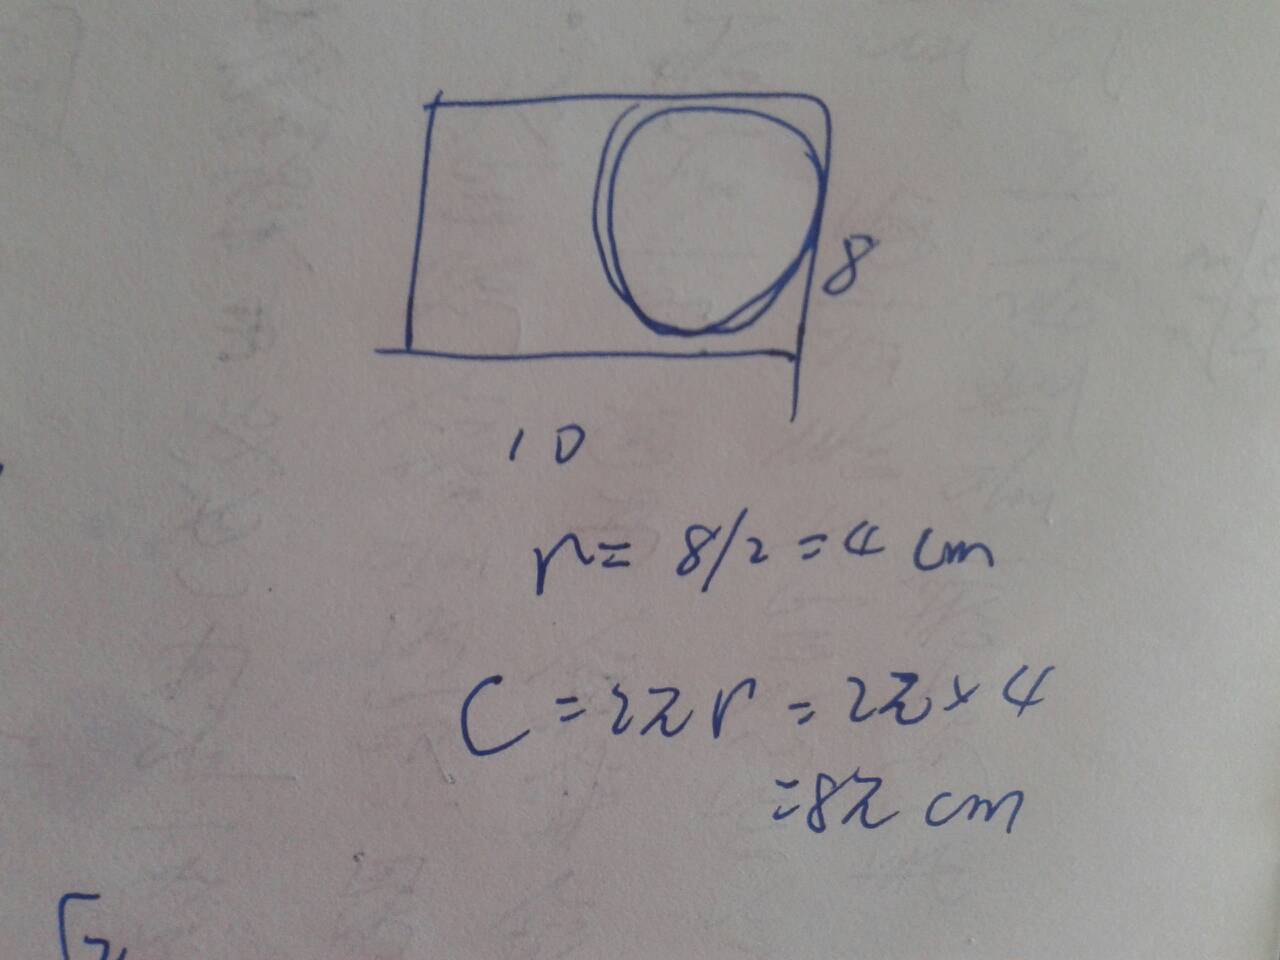 8
10
r = 8/2 = 4 cm
C = 2π r = 2π × 4
= 8π cm